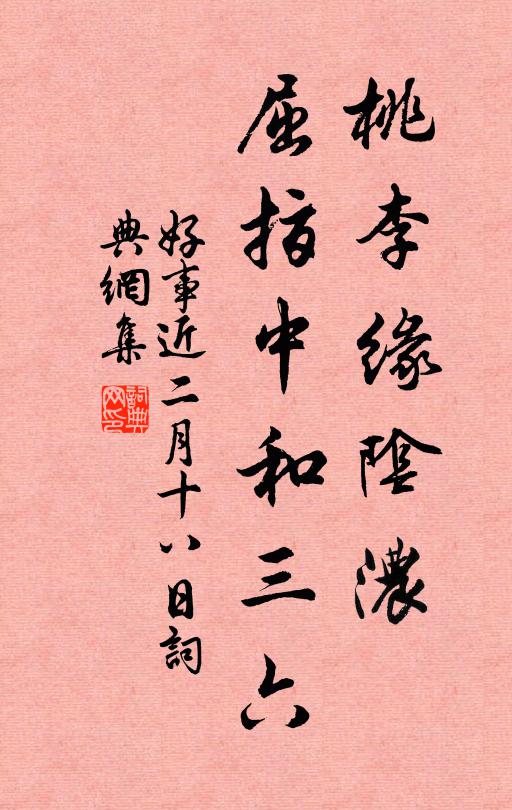 桃李緣陰濃
屈指中和三六
好事近二月十八日詞
典網集
詞典
网印